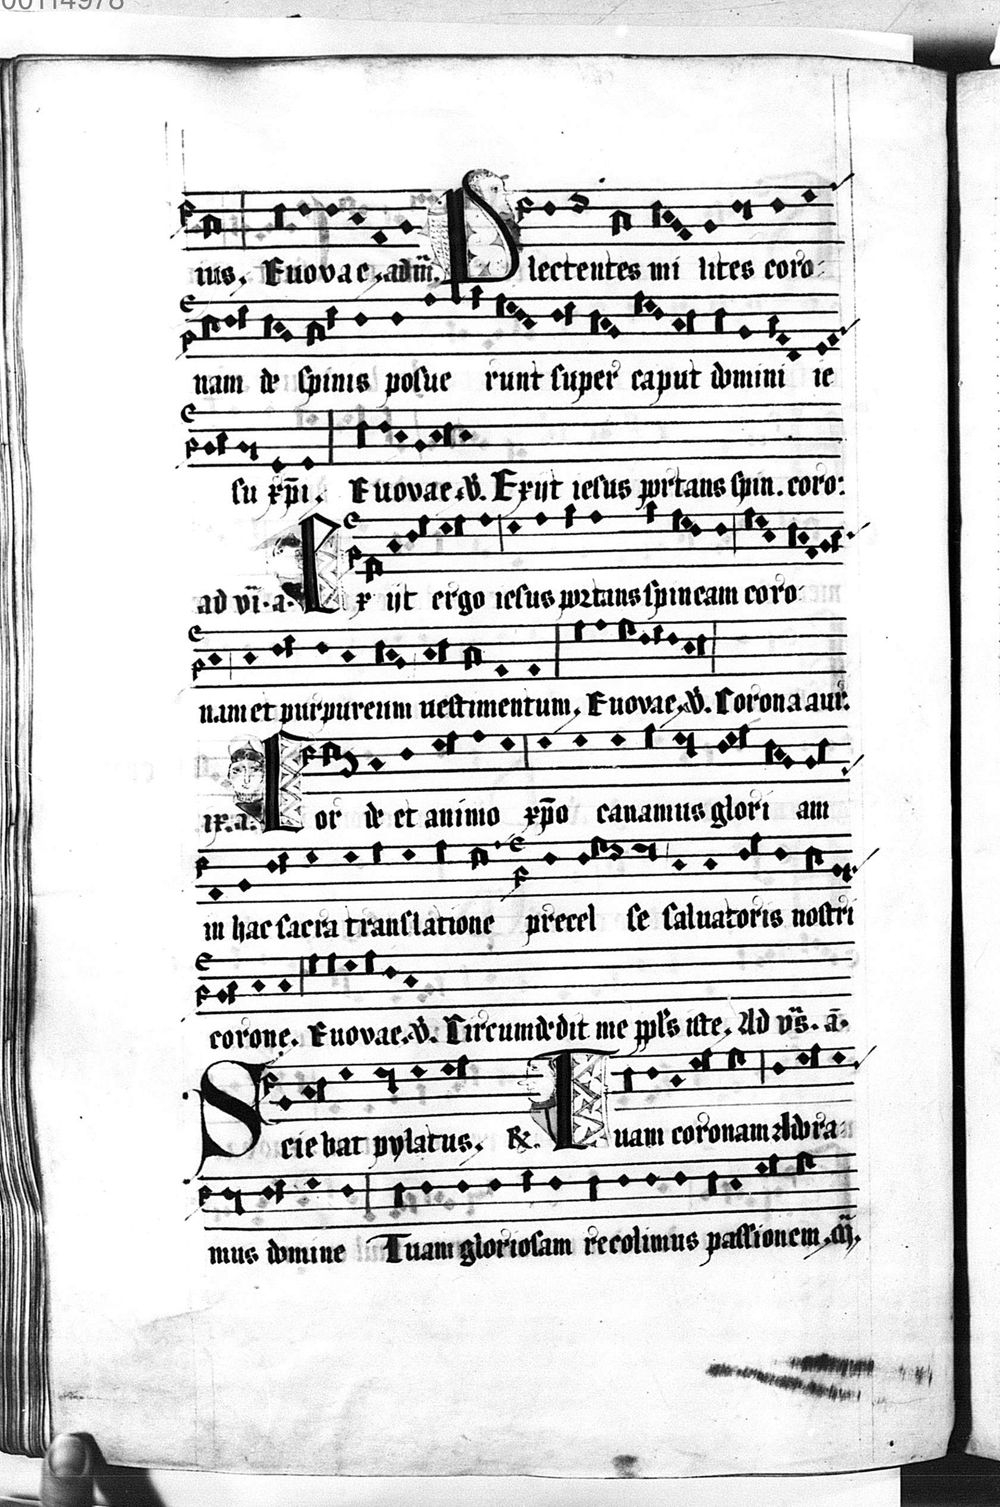 00114978
ius. Euovae. ad iii. Plectentes mi lites coro
nam de spinis posue runt super caput domini ie
su xp̄i. Euovae. V̄. Exiit iesus portans spin. coro:
ad vi. a. Ex iit ergo iesus portans spineam coro
nam et purpureum uestimentum. Euovae. V̄. Corona aur.
ix. a. Cor de et animo xp̄o canamus glori am
in hac sacra translatione precel se saluatoris nostri
corone. Euovae. V̄. Circumdedit me ppl's iste. Ad vs̄. ā.
Scie bat pylatus. R. Tuam coronam adora
mus domine Tuam gloriosam recolimus passionem.